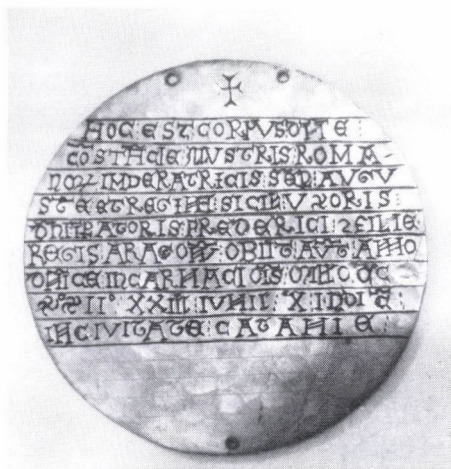 ✝
HOC : EST : CORPVS : DNE
COSTACIE ILLVSTRIS ROMA-
NOꝜ IMPERATRICIS SEP AVGV
STE ET REGINE SICIL VXORIS
DNI IPATORIS FREDERICI ⁊ FILIE
REGIS ARAGON OBIIT AVT ANNO
DNICE INCARNACIOIS
II° XXIII IVNII X INDIC
IN CIVITATE CATANIE